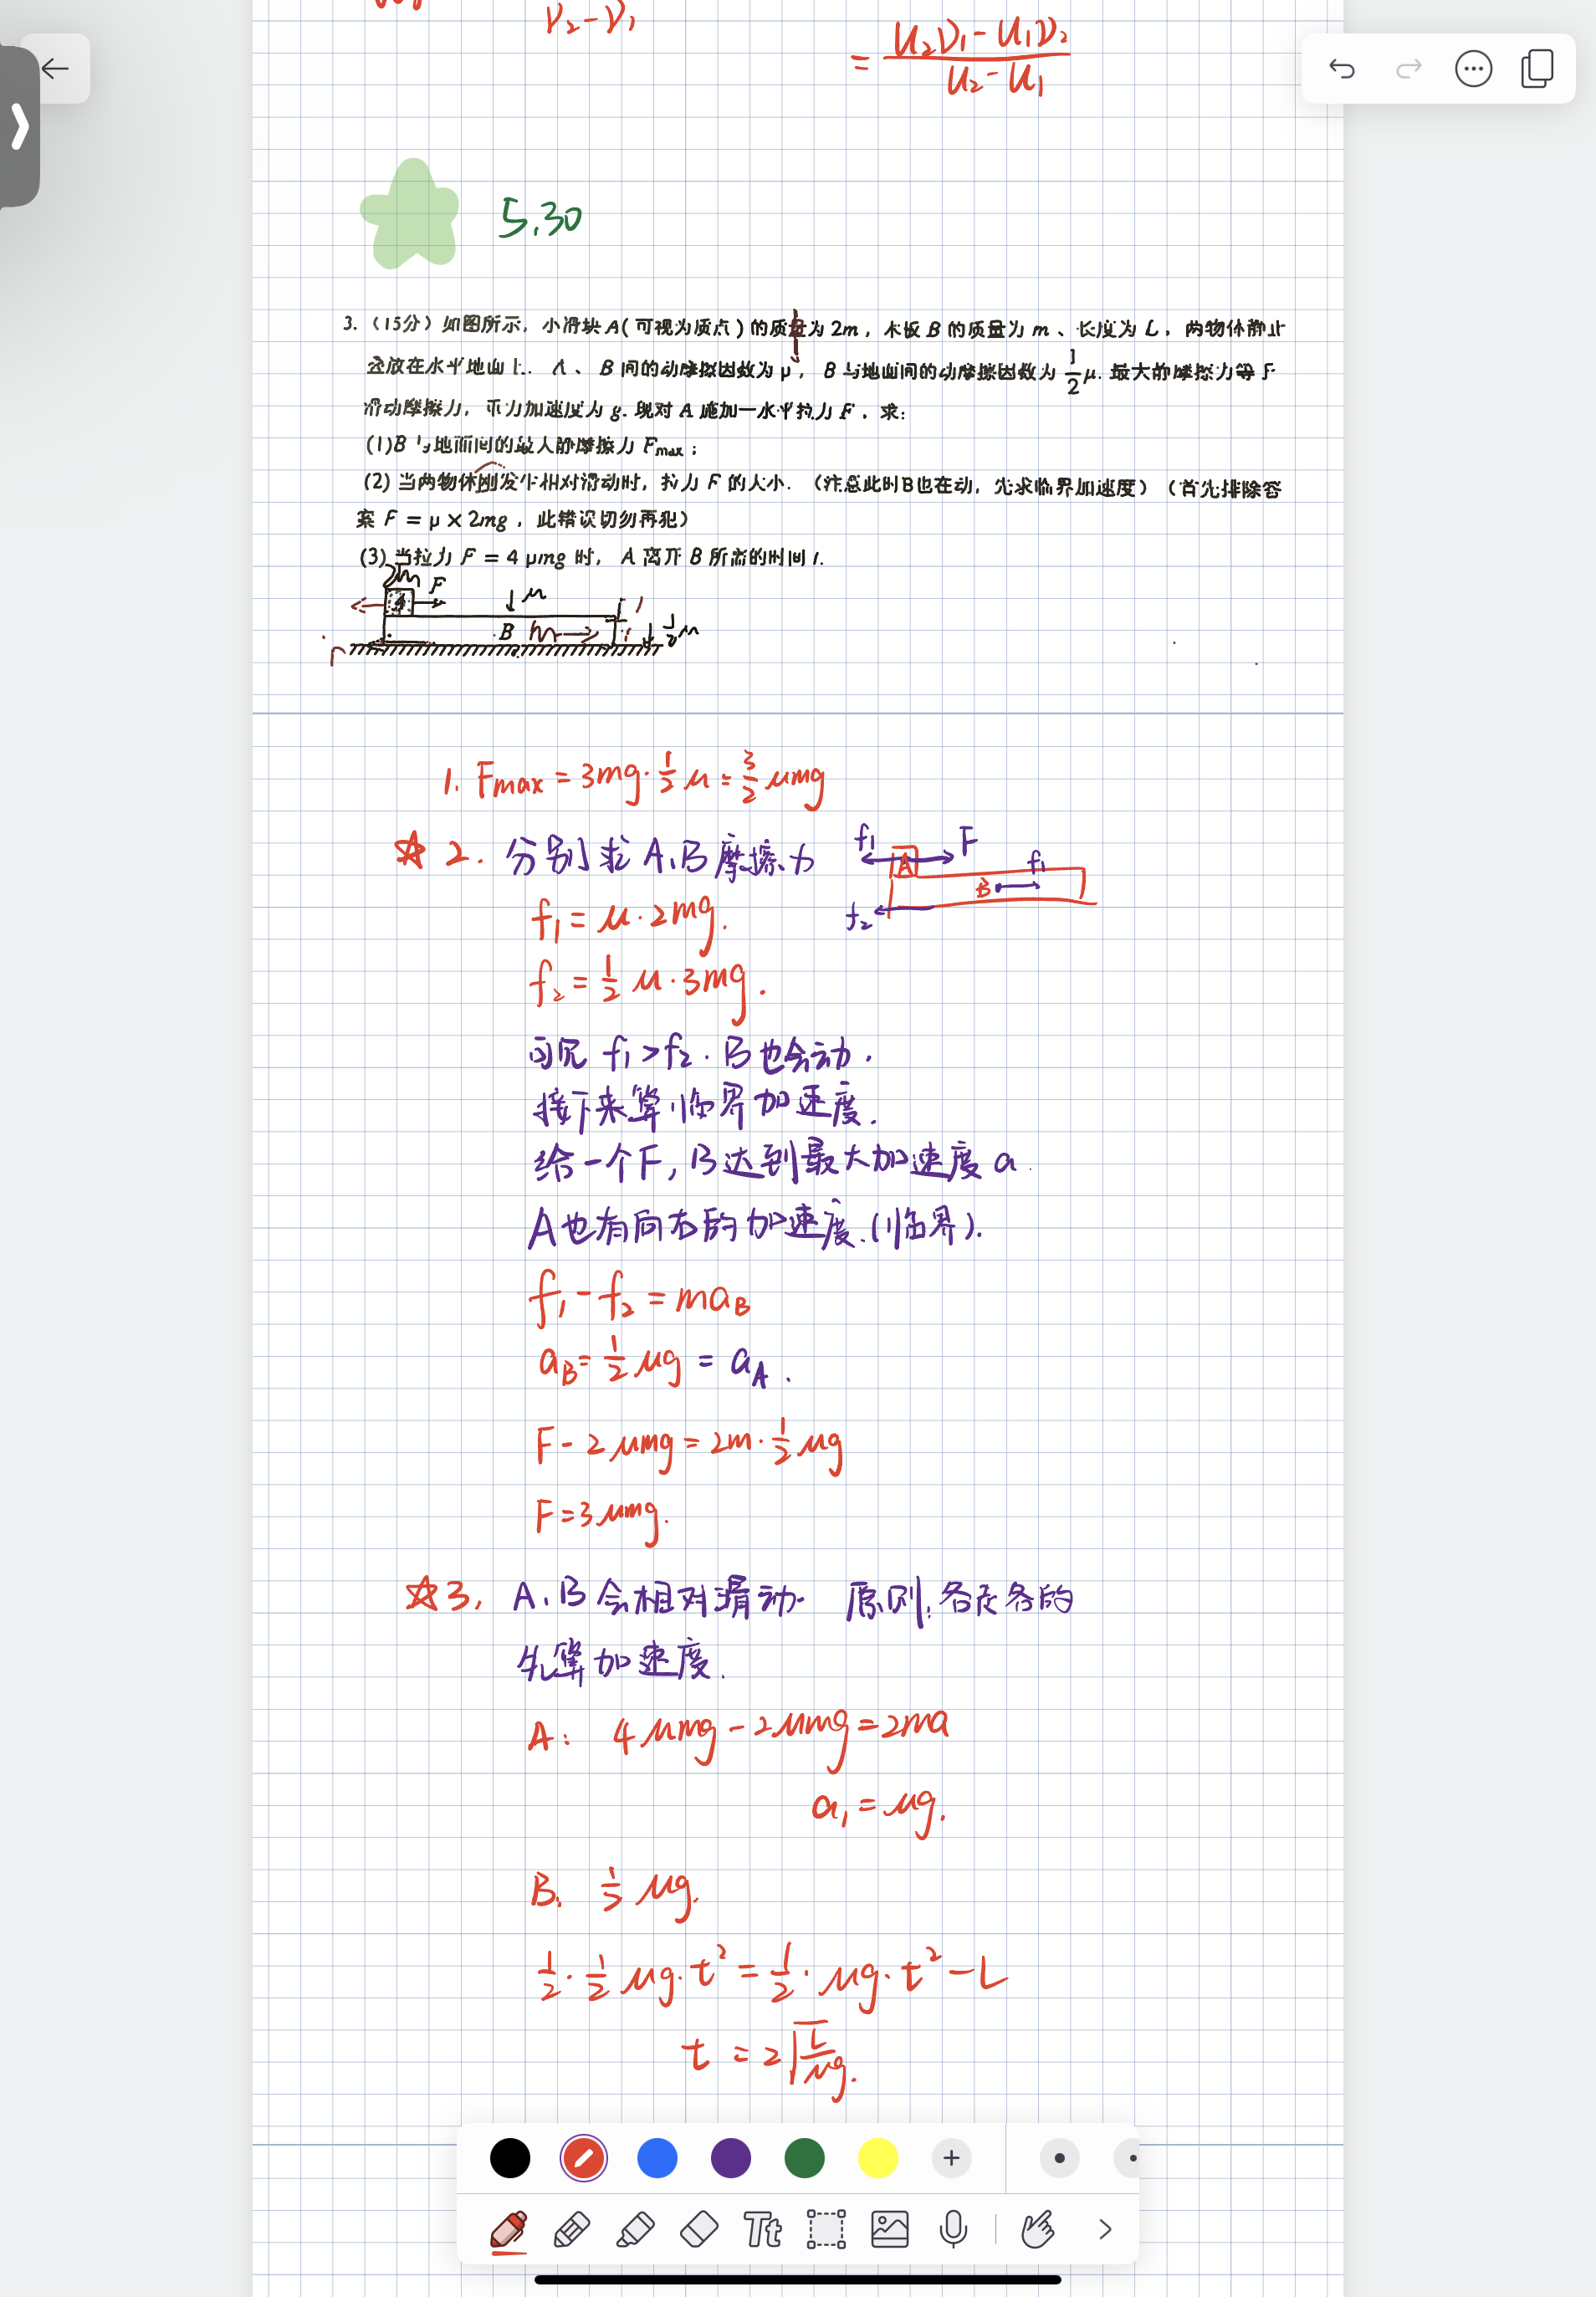 ν₂-ν₁
= (U₂ν₁-U₁ν₂)/(U₂-U₁)
5.30
3.（15分）如图所示，小滑块A(可视为质点)的质量为2m，木板B的质量为m、长度为L，两物体静止
叠放在水平地面上. A、B间的动摩擦因数为μ，B与地面间的动摩擦因数为 1/2 μ. 最大静摩擦力等于
滑动摩擦力，重力加速度为g. 现对A施加一水平拉力F，求：
(1)B与地面间的最大静摩擦力 Fmax；
(2)当两物体刚发生相对滑动时，拉力F的大小.（注意此时B也在动，先求临界加速度）（首先排除答
案 F=μ×2mg，此错误切勿再犯）
(3)当拉力 F=4μmg 时，A离开B所需的时间t.
2m F
A μ
B m 1/2 μ
1. Fmax = 3mg·1/2 μ = 3/2 μmg
2. 分别求A、B摩擦力
f₁ F
A f₁
B
f₂
f₁ = μ·2mg.
f₂ = 1/2 μ·3mg.
可见 f₁>f₂. B也会动.
接下来算临界加速度.
给一个F, B达到最大加速度a.
A也有向右的加速度.(临界).
f₁-f₂=maB
aB=1/2 μg = aA.
F-2μmg=2m·1/2 μg
F=3μmg.
3. A、B会相对滑动. 原则:各走各的
先算加速度.
A: 4μmg-2μmg=2ma
a₁=μg.
B. 1/2 μg.
1/2·1/2 μg·t²=1/2·μg·t²-L
t = 2√(L/μg).
Tt